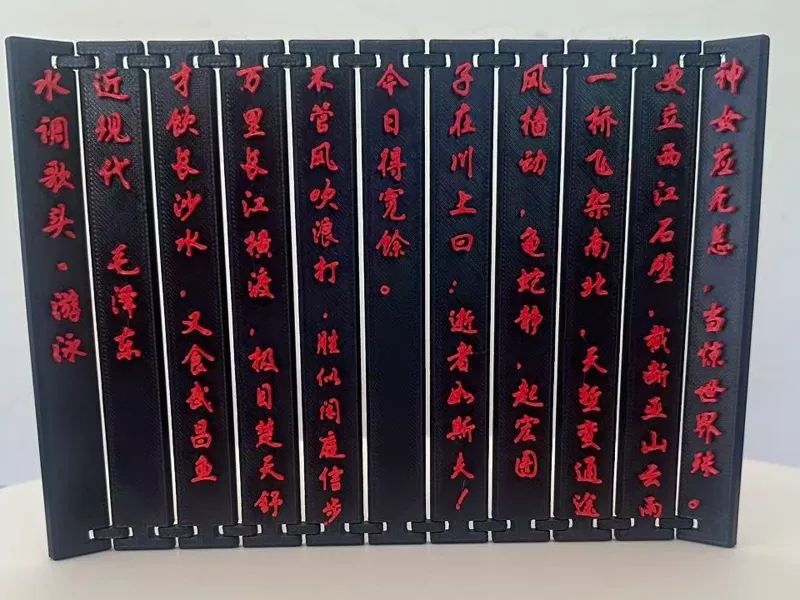 水调歌头·游泳
近现代 毛泽东
才饮长沙水,又食武昌鱼
万里长江横渡,极目楚天舒
不管风吹浪打,胜似闲庭信步
今日得宽馀。
子在川上曰:逝者如斯夫!
风樯动,龟蛇静,起宏图
一桥飞架南北,天堑变通途
更立西江石壁,截断巫山云雨
神女应无恙,当惊世界殊。